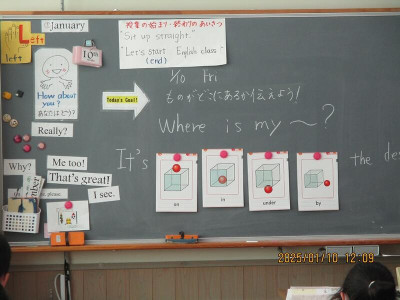 January
L eft
left
10th
授業の始まり・終わりのあいさつ
"Sit up straight."
"Let's start English class."
(end)
How about you?
あなたはどう?
Today's Goal!
1/10 Fri
ものがどこにあるか伝えよう!
Where is my ~?
Really?
Why?
Me too!
That's great!
I see.
It's
on
in
under
by
the des
2025/01/10 12:09